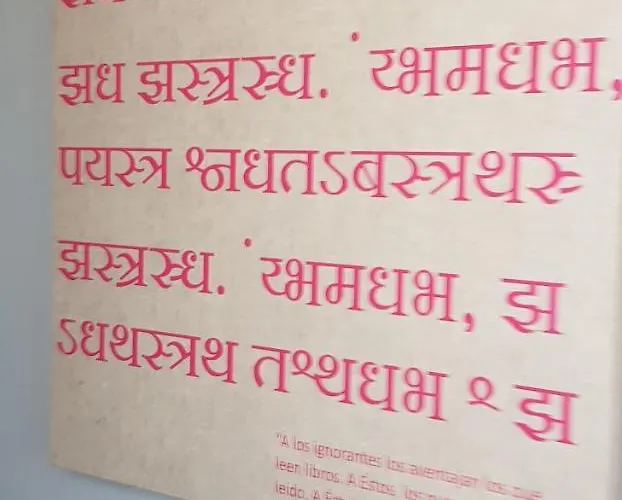 झध झस्त्रस्ध. ंय्भमधभ,
पयस्त्र श्नधतऽबस्त्रथरु
झस्त्रस्ध. ंय्भमधभ, झ
ऽधथस्त्रथ तश्थधभ १ झ
"A los ignorantes los aventajan los que
leen libros. A Éstos, los
leído. A